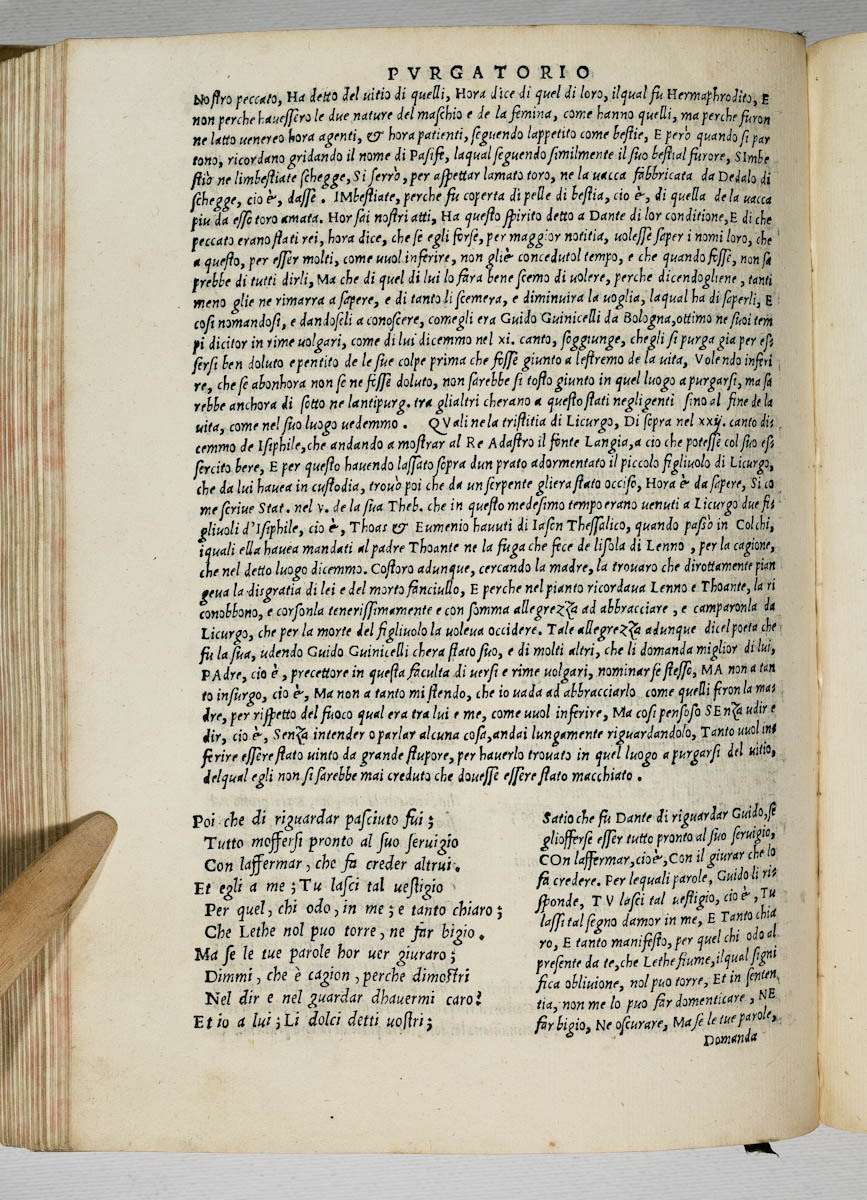 PVRGATORIO
Nostro peccato, Ha detto del uitio di quelli, Hora dice di quel di loro, ilqual fu Hermaphrodito, E
non perche hauessero le due nature del maschio e de la femina, come hanno quelli, ma perche furon
ne latto uenereo hora agenti, & hora patienti, seguendo lappetito come bestie, E però quando si par
tono, ricordano gridando il nome di Pasife, laqual seguendo similmente il suo bestial furore, SImbe
stiò ne limbestiate schegge, Si serrò, per aspettar lamato toro, ne la uacca fabbricata da Dedalo di
schegge, cio è, dasse. IMbestiate, perche fu coperta di pelle di bestia, cio è, di quella de la uacca
piu da esso toro amata. Hor sai nostri atti, Ha questo spirito detto a Dante di lor conditione, E di che
peccato erano stati rei, hora dice, che se egli forse, per maggior notitia, uolesse saper i nomi loro, che
a questo, per esser molti, come uuol inferire, non gliè concedutol tempo, e che quando fosse, non sa
prebbe di tutti dirli, Ma che di quel di lui lo fara bene scemo di uolere, perche dicendogliene, tanti
meno glie ne rimarra a sapere, e di tanto li scemera, e diminuira la uoglia, laqual ha di saperli, E
cosi nomandosi, e dandoseli a conoscere, comegli era Guido Guinicelli da Bologna, ottimo ne suoi tem
pi dicitor in rime uolgari, come di lui dicemmo nel xi. canto, soggiunge, chegli si purga gia per es⸗
sersi ben doluto e pentito de le sue colpe prima che fosse giunto a lestremo de la uita, Volendo inferi
re, che se abonhora non se ne fosse doluto, non sarebbe si tosto giunto in quel luogo a purgarsi, ma sa
rebbe anchora di sotto ne lantipurg. tra glialtri cherano a questo stati negligenti sino al fine de la
uita, come nel suo luogo uedemmo. QVali ne la tristitia di Licurgo, Di sopra nel xxij. canto di⸗
cemmo de Isiphile, che andando a mostrar al Re Adastro il fonte Langia, a cio che potesse col suo es⸗
sercito bere, E per questo hauendo lassato sopra dun prato adormentato il piccolo figliuolo di Licurgo,
che da lui hauea in custodia, trouò poi che da un serpente gliera stato occiso, Hora è da sapere, Si co
me scriue Stat. nel v. de la sua Theb. che in questo medesimo tempo erano uenuti a Licurgo due fi⸗
gliuoli d'Isiphile, cio è, Thoas & Eumenio hauuti di Iason Thessalico, quando passò in Colchi,
iquali ella hauea mandati al padre Thoante ne la fuga che fece de lisola di Lenno, per la cagione,
che nel detto luogo dicemmo. Costoro adunque, cercando la madre, la trouaro che dirottamente pian
geua la disgratia di lei e del morto fanciullo, E perche nel pianto ricordaua Lenno e Thoante, la ri
conobbono, e corsonla tenerissimamente e con somma allegrezza ad abbracciare, e camparonla da
Licurgo, che per la morte del figliuolo la uoleua occidere. Tale allegrezza adunque dicel poeta che
fu la sua, udendo Guido Guinicelli chera stato suo, e di molti altri, che li domanda miglior di lui,
PAdre, cio è, precettore in questa faculta di uersi e rime uolgari, nominar se stesso, MA non a tan
to insurgo, cio è, Ma non a tanto mi stendo, che io uada ad abbracciarlo come quelli feron la ma⸗
dre, per rispetto del fuoco qual era tra lui e me, come uuol inferire, Ma cosi pensoso SEnza udir e
dir, cio è, Senza intender o parlar alcuna cosa, andai lungamente riguardandolo, Tanto uuol in⸗
ferire essere stato uinto da grande stupore, per hauerlo trouato in quel luogo a purgarsi del uitio,
delqual egli non si sarebbe mai creduto che douesse essere stato macchiato.
Poi che di riguardar pasciuto fui;
Tutto moffersi pronto al suo seruigio
Con laffermar, che fa creder altrui.
Et egli a me; Tu lasci tal uestigio
Per quel, chi odo, in me; e tanto chiaro;
Che Lethe nol puo torre, ne far bigio.
Ma se le tue parole hor uer giuraro;
Dimmi, che è cagion, perche dimostri
Nel dir e nel guardar dhauermi caro?
Et io a lui; Li dolci detti uostri;
Satio che fu Dante di riguardar Guido, se
glioffersе esser tutto pronto al suo seruigio,
COn laffermar, cio è, Con il giurar che lo
fa credere. Per lequali parole, Guido li ri⸗
sponde, TV lasci tal uestigio, cio è, Tu
lassi tal segno damor in me, E Tanto chia
ro, E tanto manifesto, per quel chi odo al
presente da te, che Lethe fiume, ilqual signi
fica obliuione, nol puo torre, Et in senten
tia, non me lo puo far domenticare, NE
far bigio, Ne oscurare, Ma se le tue parole,
Domanda